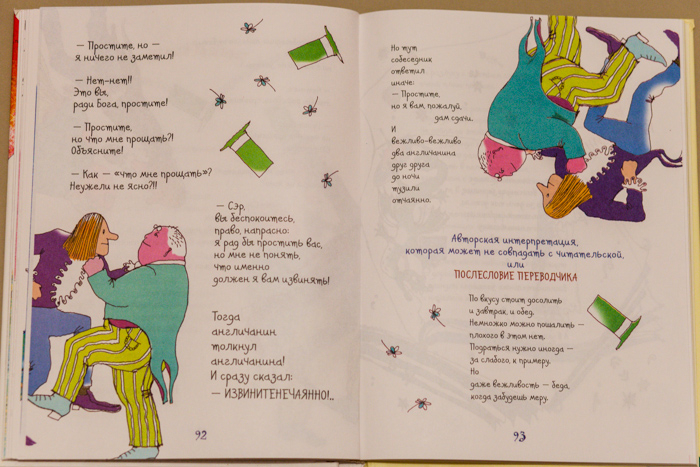 — Простите, но —
я ничего не заметил!
— Нет-нет!!
Это я,
ради Бога, простите!
— Простите,
но что мне прощать?!
Объясните!
— Как — «что мне прощать»?
Неужели не ясно?!!
— Сэр,
вы беспокоитесь,
право, напрасно:
я рад бы простить вас,
но мне не понять,
что именно
должен я вам извинять!
Тогда
англичанин
толкнул
англичанина!
И сразу сказал:
— ИЗВИНИТЕНЕЧАЯННО!..
92
Но тут
собеседник
ответил
иначе:
— Простите,
но я вам, пожалуй,
дам сдачи.
И
вежливо-вежливо
два англичанина
друг друга
до ночи
тузили
отчаянно.
Авторская интерпретация,
которая может не совпадать с читательской,
или
ПОСЛЕСЛОВИЕ ПЕРЕВОДЧИКА
По вкусу стоит досолить
и завтрак, и обед.
Немножко можно пошалить —
плохого в этом нет.
Подраться нужно иногда —
за слабого, к примеру.
Но
даже вежливость — беда,
когда забудешь меру.
93